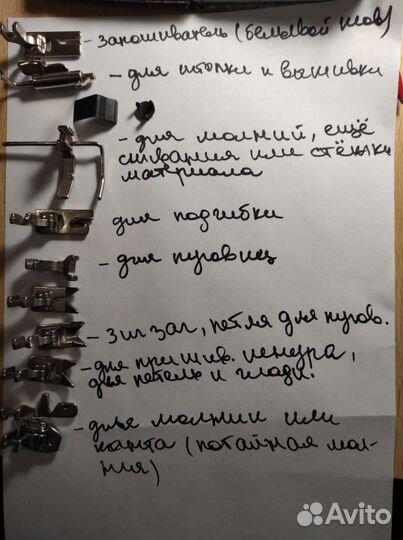 - запошиватель (бельевой шов)
- для штопки и вышивки
- для молний, ещё
сшивания или стёжки
материала
для подгибки
- для пуговиц
- зигзаг, петля для пугов.
- для пришив. шнура,
для петель и глади.
- для молнии или
канта (потайная мол-
ния)
Avito